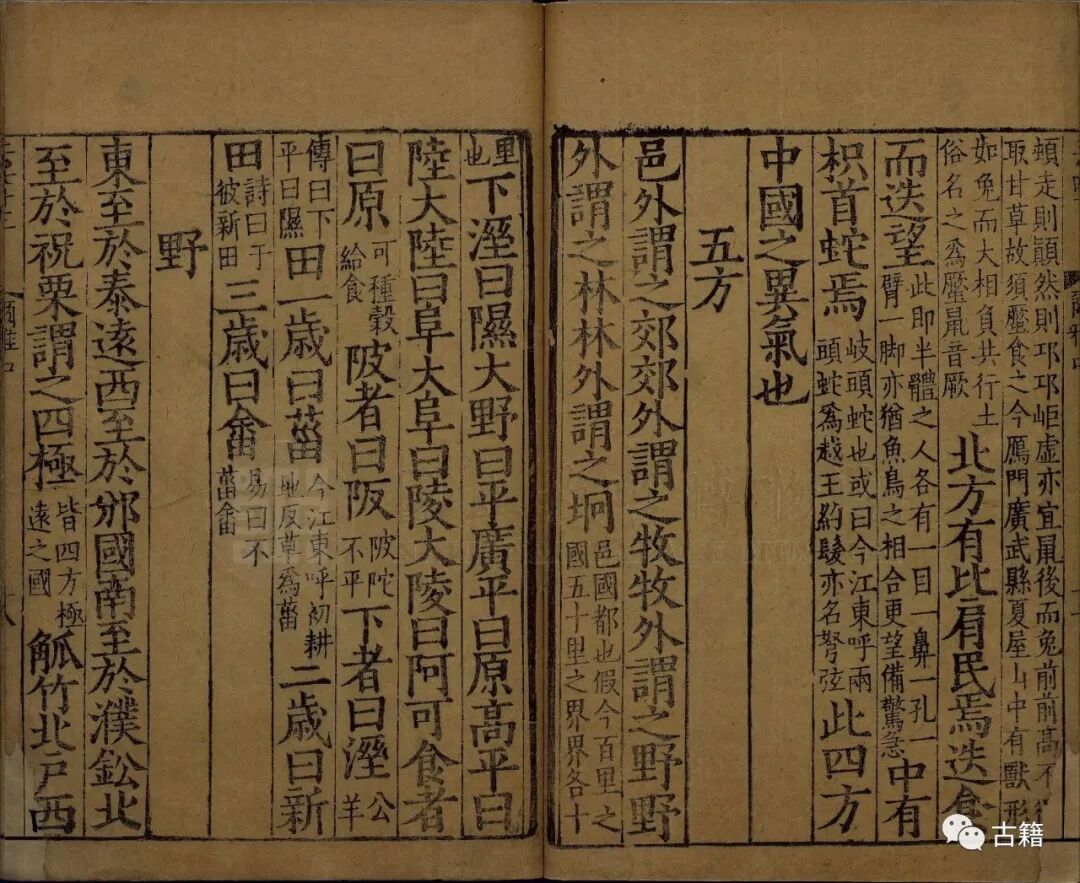 走則顛然則邛邛岠虛亦宜鼠後而兔前前高不
取甘草故須蟨食之今鴈門廣武縣夏屋山中有獸形
如兔而大相負共行土俗名之爲蟨鼠音厥北方有比肩民焉迭食
而迭望此即半體之人各有一目一鼻一孔一臂一脚亦猶魚鳥之相合更望備驚急中有
枳首蛇焉岐頭蛇也或曰今江東呼兩頭蛇爲越王約髮亦名弩弦此四方
中國之異氣也
五方
邑外謂之郊郊外謂之牧牧外謂之野野
外謂之林林外謂之坰邑國都也假令百里之國五十里之界界各十
里也下溼曰隰大野曰平廣平曰原高平曰
陸大陸曰阜大阜曰陵大陵曰阿可食者
曰原可種穀給食陂者曰阪陂陀不平下者曰溼公羊
傳曰下平曰隰田一歲曰菑今江東呼初耕地反草爲菑二歲曰新
田詩曰于彼新田三歲曰畬易曰不菑畬
野
東至於泰遠西至於邠國南至於濮鈆北
至於祝栗謂之四極皆四方極遠之國觚竹北戶西
古籍